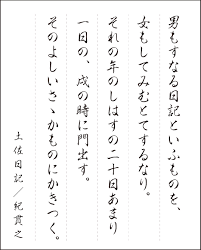 男もすなる日記といふものを、
女もしてみむとてするなり。
それの年のしはすの二十日あまり
一日の、戌の時に門出す。
そのよしいさゝかものにかきつく。
土佐日記／紀貫之